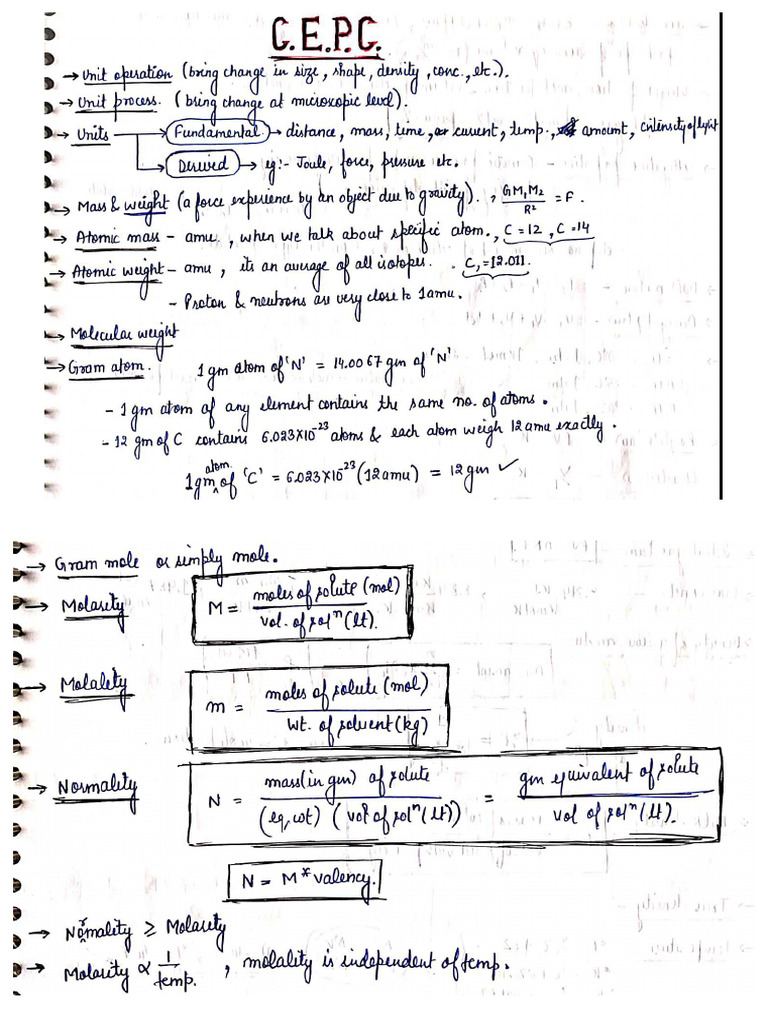 C.E.P.C.
→ Unit operation (bring change in size, shape, density, conc., etc.).
→ Unit process. (bring change at microscopic level).
→ Units → Fundamental → distance, mass, time, current, temp., amount, intensity of light
→ Derived → eg:- Joule, force, pressure etc.
→ Mass & weight (a force experience by an object due to gravity). , GM₁M₂/R² = F.
→ Atomic mass - amu. , when we talk about specific atom., C=12, C=14
→ Atomic weight - amu , its an average of all isotopes. . C, =12.011.
- Proton & neutrons are very close to 1amu.
→ Molecular weight
→ Gram atom. 1 gm atom of 'N' = 14.0067 gm of 'N'
- 1 gm atom of any element contains the same no. of atoms.
- 12 gm of C contains 6.023×10⁻²³ atoms & each atom weigh 12 amu exactly.
1gm atom of 'C' = 6.023×10⁻²³ (12amu) = 12gm ✓
→ Gram mole or simply mole.
→ Molarity M = moles of solute (mol) / vol. of solⁿ (lt).
→ Molality m = moles of solute (mol) / wt. of solvent (kg)
→ Normality N = mass (in gm) of solute / (eq. wt) (vol of solⁿ (lt)) = gm equivalent of solute / vol of solⁿ (lt).
N = M * valency.
→ Normality ≥ Molarity
→ Molarity ∝ 1/temp. , molality is independent of temp.